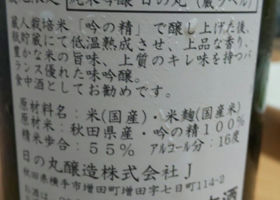 純米吟醸 日の丸(蔵ラベル)
蔵人栽培米「吟の精」で醸し上げた後、
秋貯蔵にて低温熟成させ、上品な香り、
豊かな米の旨味、上質のキレ味を持つバ
ランス優れた味吟醸。
食中酒としてお勧めです。
原材料名:米(国産)・米麹(国産米)
原料米:秋田県産・吟の精100%
精米歩合:55% アルコール分:16度
日の丸醸造株式会社J
秋田県横手市増田町増田字七日町114-2